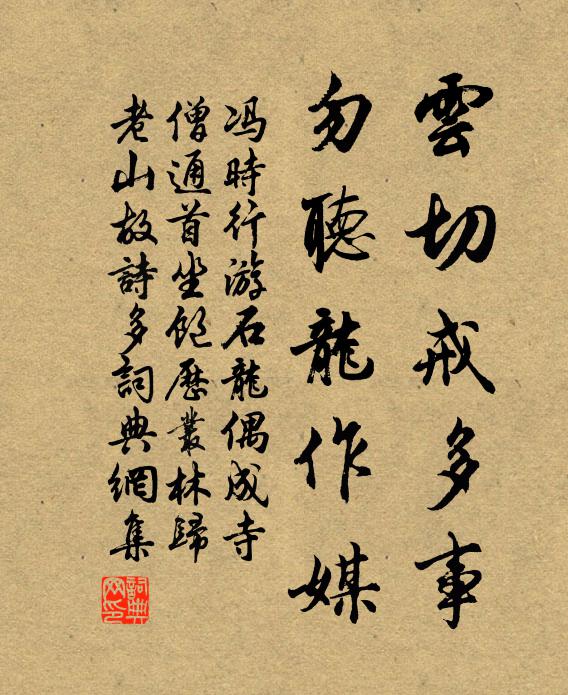 雲切戒多事
勿聽龍作媒
冯時行游石龍偶成寺
僧通首坐飽歷叢林歸
老山故詩多詞典網集
詞典网印